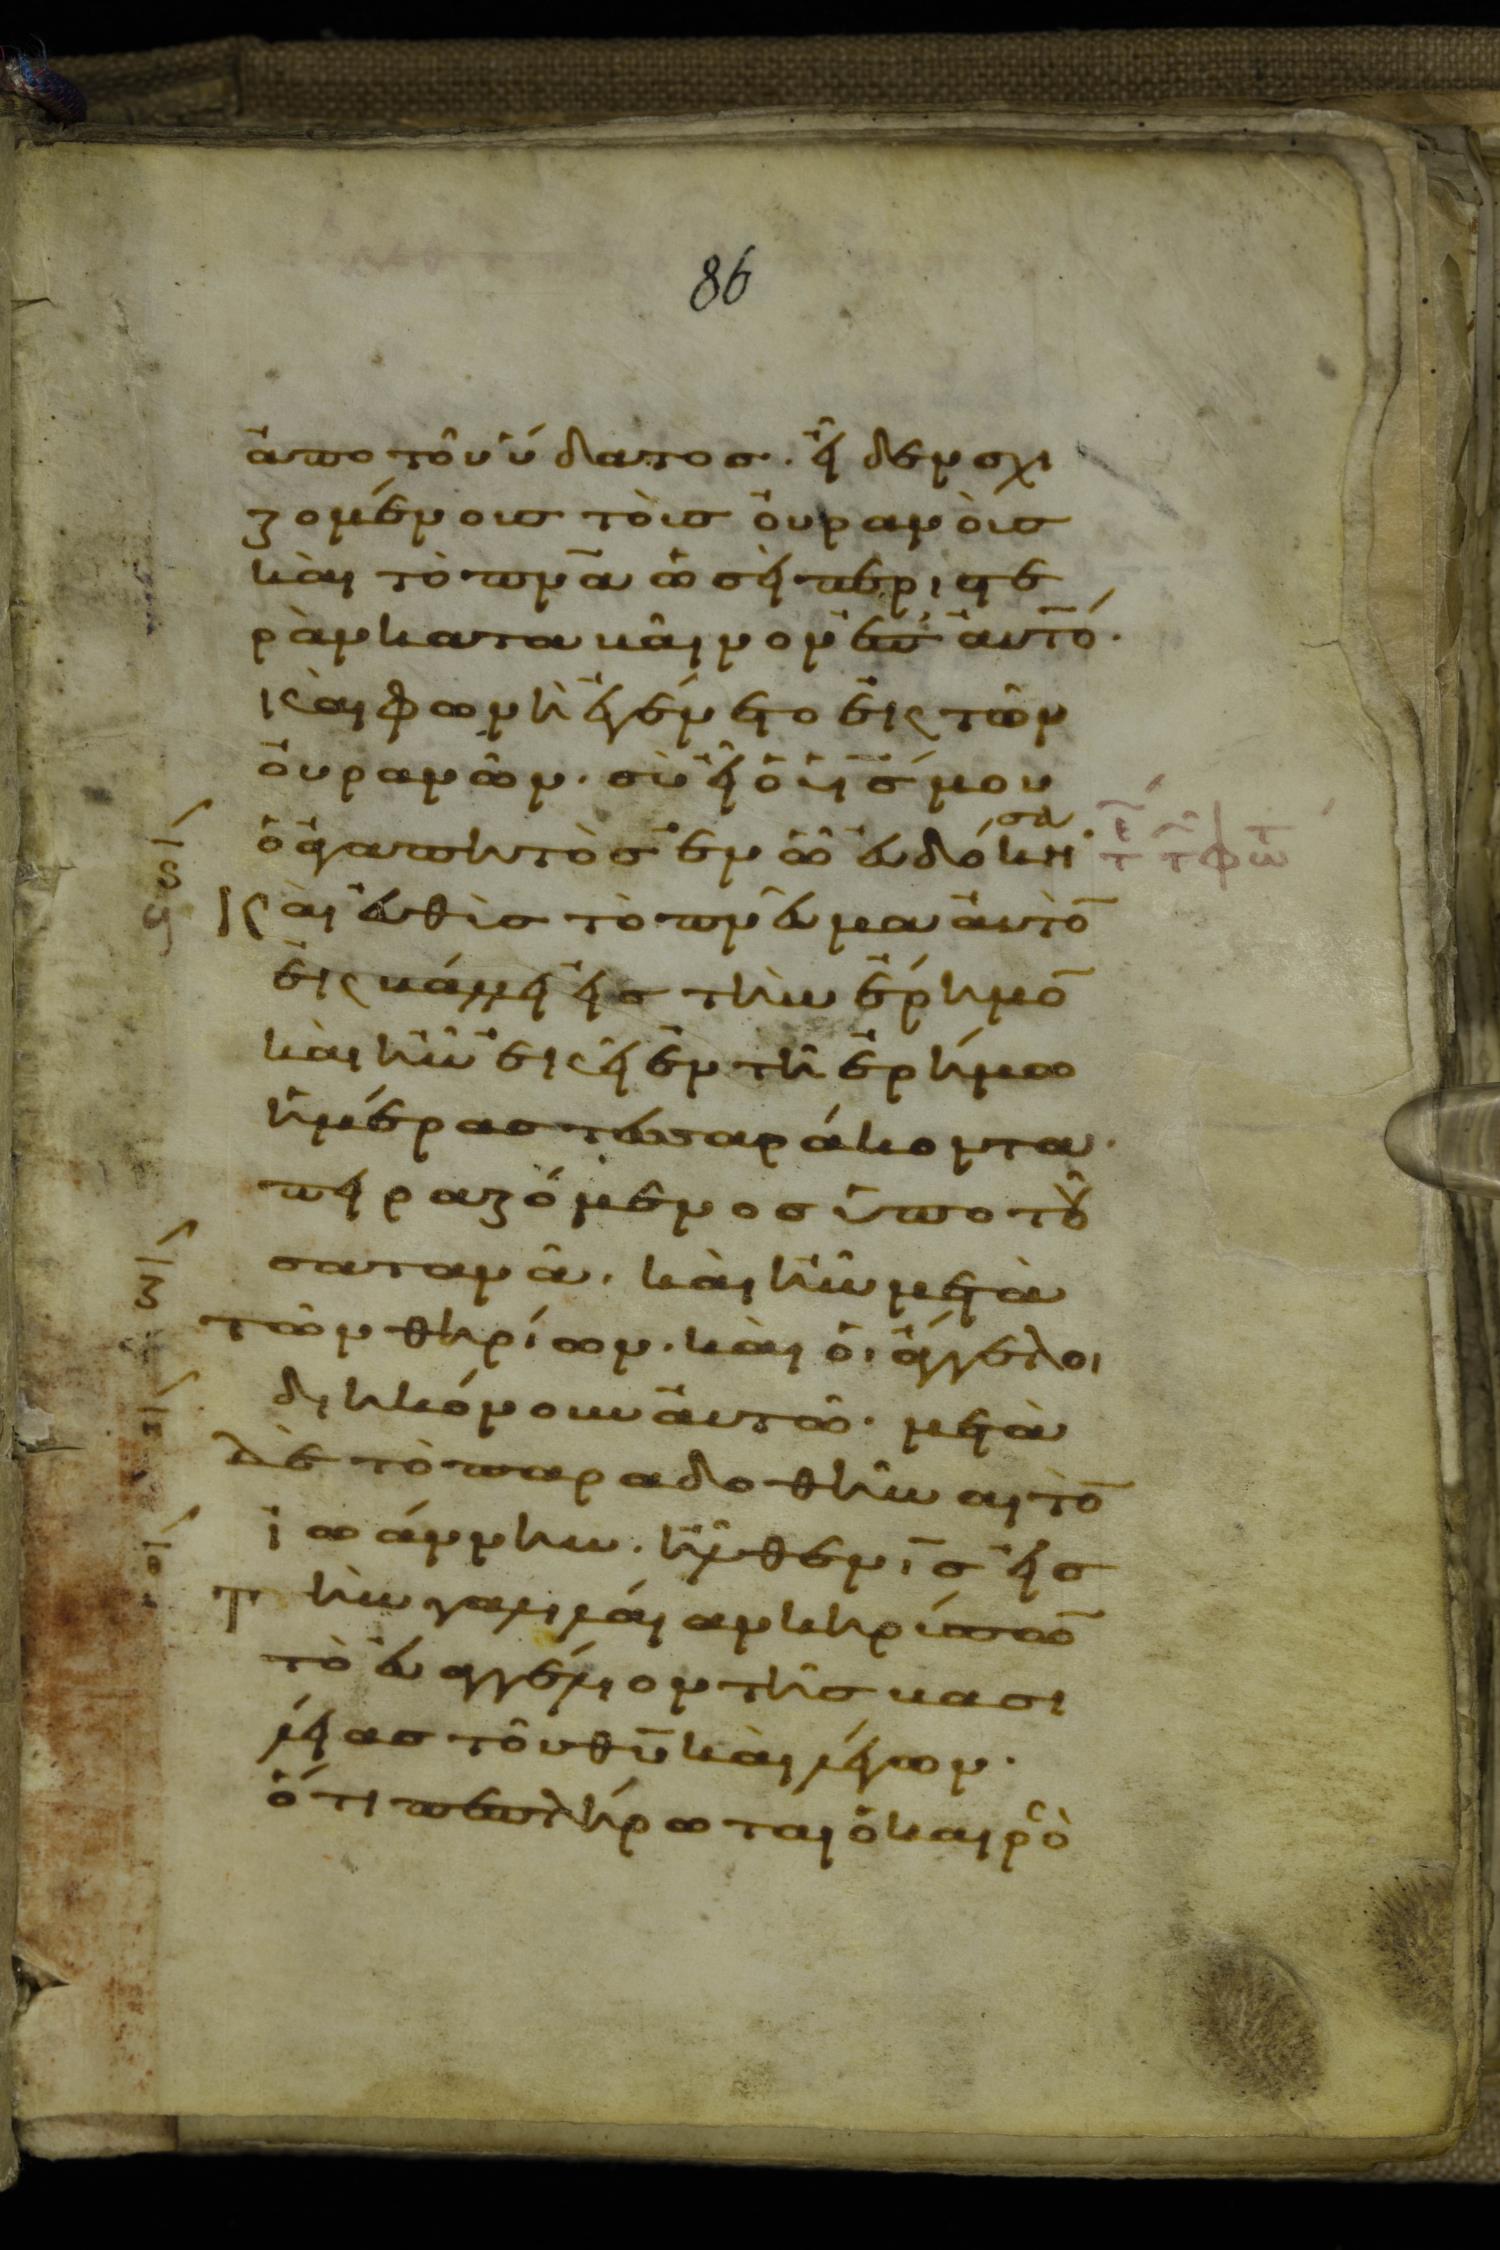 86
ἀπο τοῦ ὕδατος. εἶδεν σχι
ζομένοις τοὶς οὐρανοὶς
καὶ τὸ πνα ὡσεὶ περιστε
ρὰν κατα καῖνον ἐπ' ἀυτό.
καὶ φωνὴ ἐγένετο ἐκ τῶν
οὐρανῶν. σὺ εἶ ὁ υς μου
ὁ ἀγαπητὸς ἐν ὧ ἐυδόκη
σα
Καὶ ἐυθὶς τὸ πνεῦμα ἀυτὸ
ἐκ κάλλει εἰς τὴν ἔρημο
καὶ ἦν ἐκεῖ ἐν τῆ ἐρήμω
ἡμέρας τεσσαράκοντα.
πειραζόμενος ὑπο τοῦ
σατανᾶ. καὶ ἦν μετὰ
τῶν θηρίων. καὶ ὁι ἄγγελοι
διηκόνουν ἀυτῶ. μετὰ
δὲ τὸ παραδοθῆναι τὸ
ἰωάννην. ἦλθεν ις εἰς
Τὴν γαλιλαίαν κηρύσσω
τὸ ἐυαγγέλιον τῆς βασι
λείας τοῦ θυ καὶ λέγων.
ὅτι πεπλήρωται ὁ καιρὸ